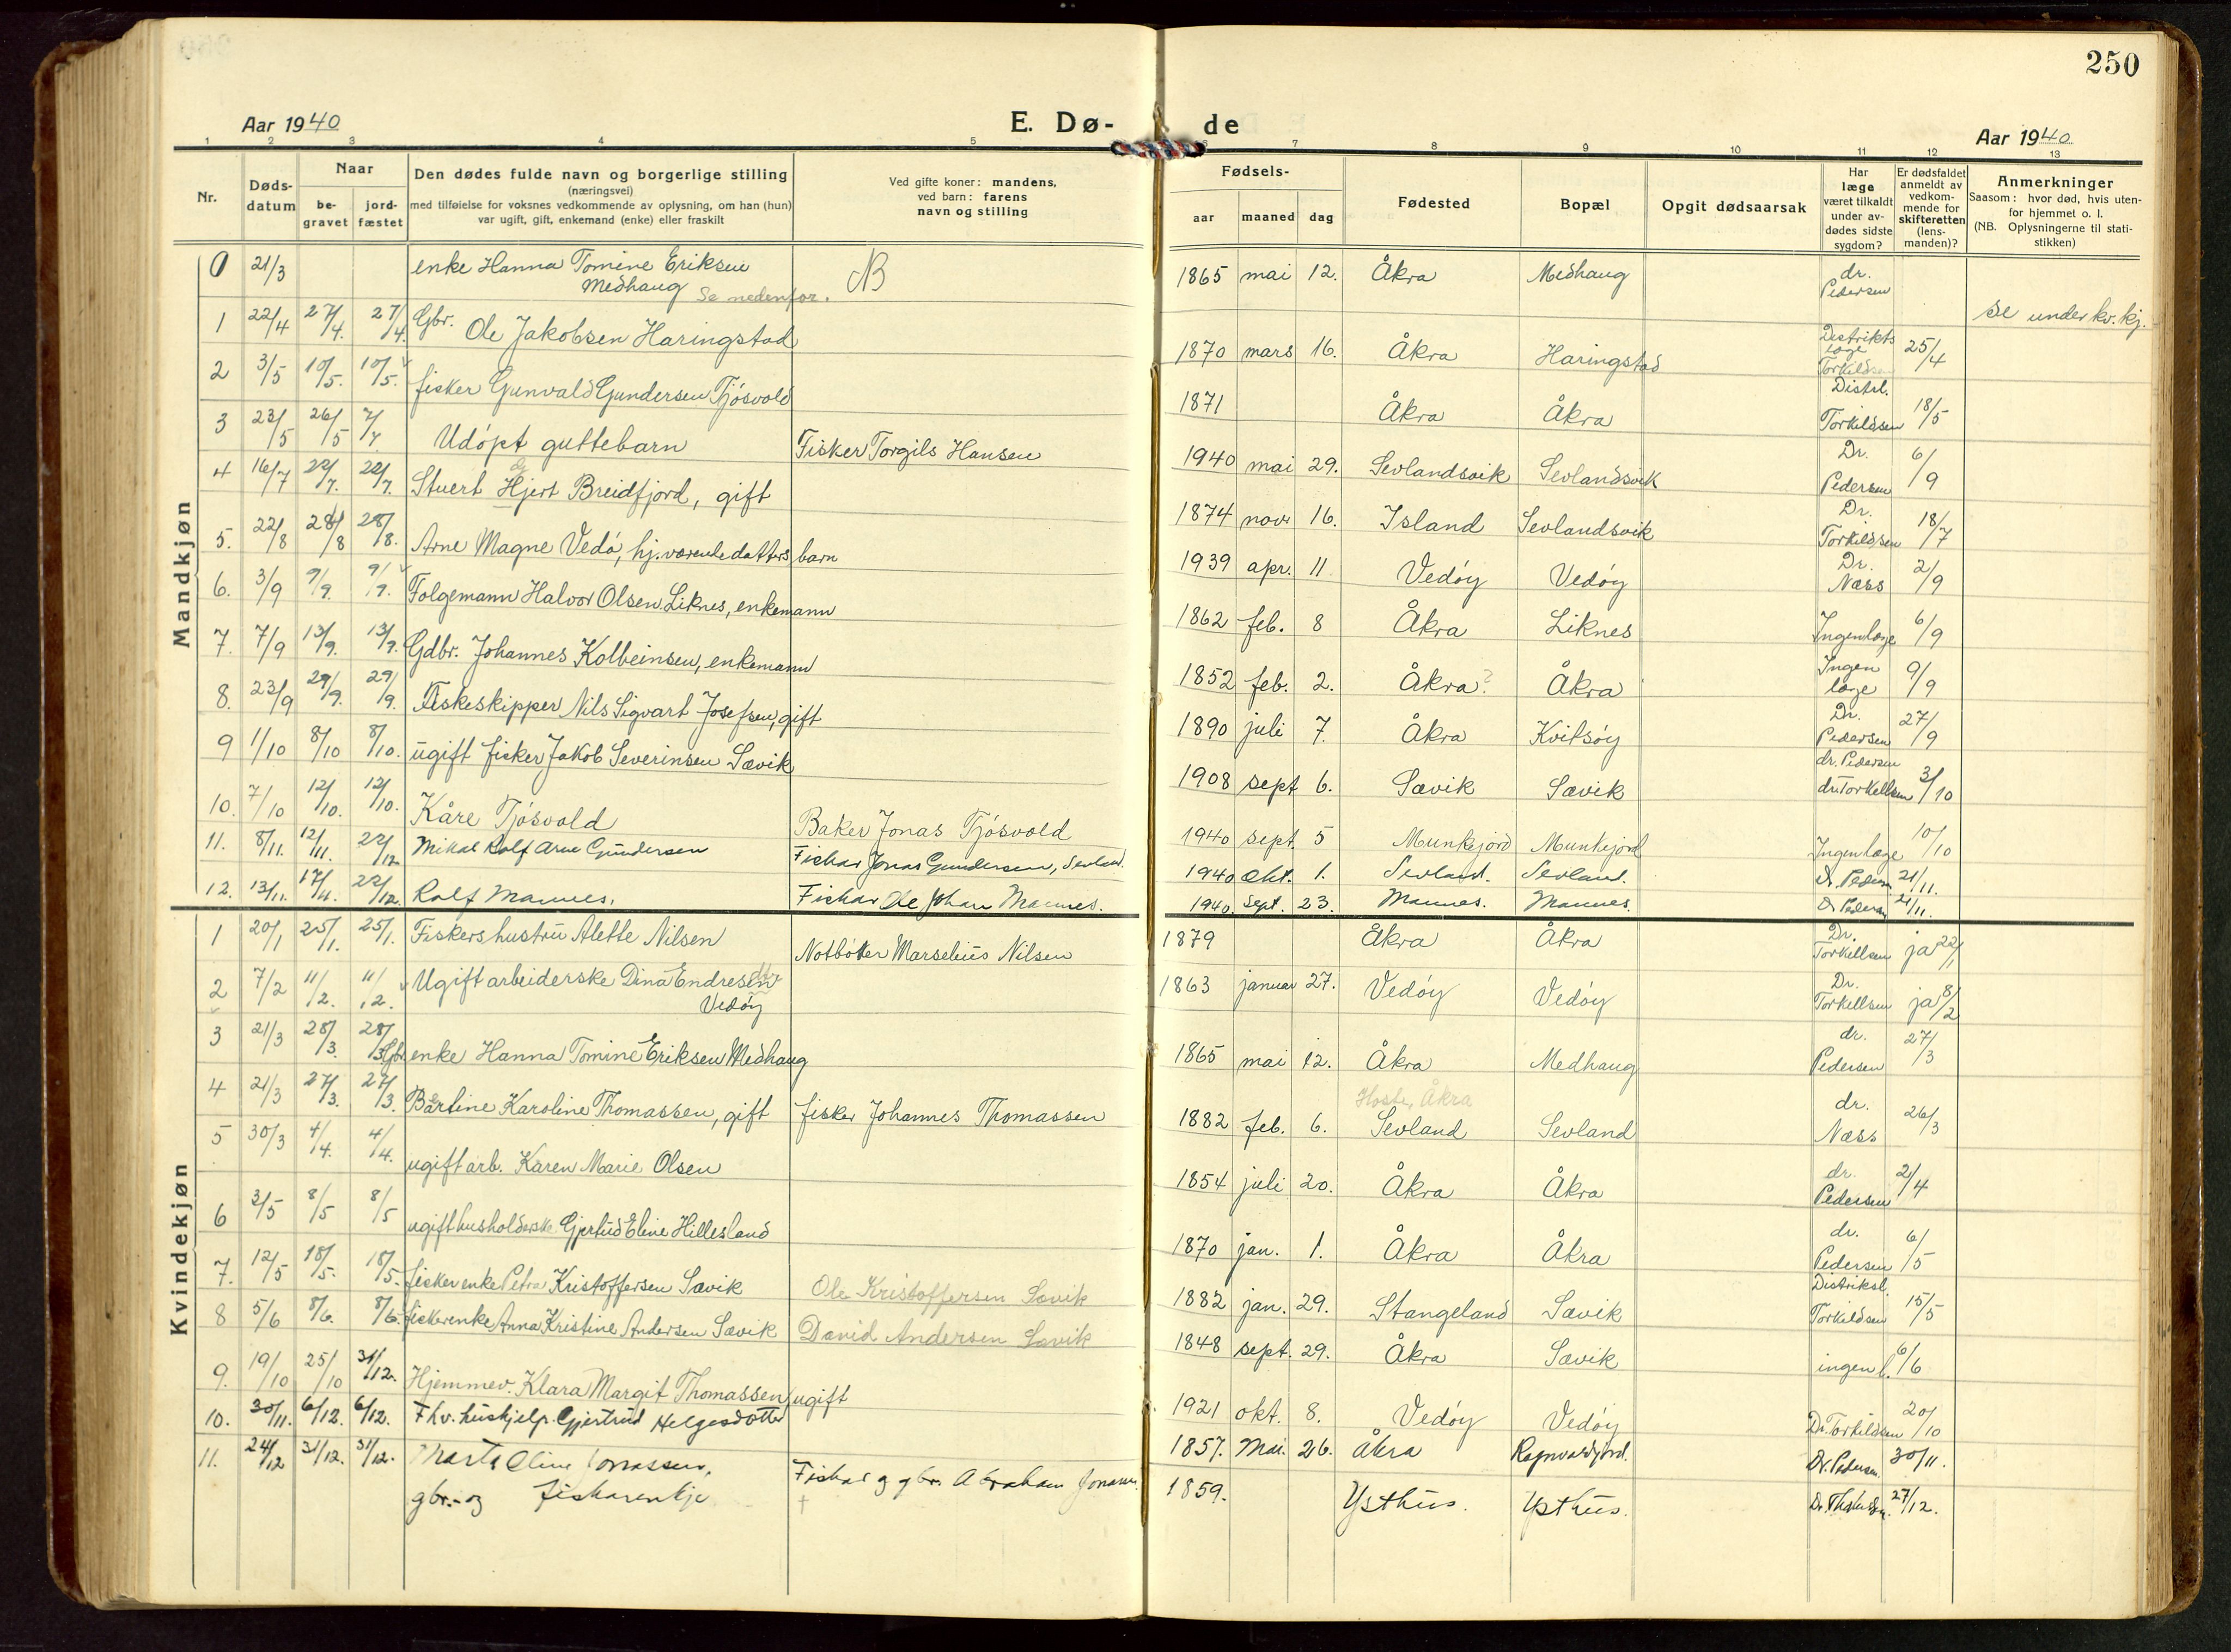 250
Aar 1940
E. Dø-
de
Aar 1940
1 2 3 4 5 6 7 8 9 10 11 12 13
Nr.
Døds-
datum
Naar
be-
gravet
jord-
fæstet
Den dødes fulde navn og borgerlige stilling
(næringsvei)
med tilføielse for voksnes vedkommende av oplysning, om han (hun)
var ugift, gift, enkemand (enke) eller fraskilt
Ved gifte koner: mandens,
ved barn: farens
navn og stilling
Fødsels-
aar
maaned
dag
Fødested
Bopæl
Opgit dødsaarsak
Har
læge
været tilkaldt
under av-
dødes sidste
sygdom?
Er dødsfaldet
anmeldt av
vedkom-
mende for
skifteretten
(lens-
manden)?
Anmerkninger
Saasom: hvor død, hvis uten-
for hjemmet o. l.
(NB. Oplysningerne til stati-
stikken)
Mandkjøn
0 21/3 enke Hanna Tomine Eriksen
Medhaug Se nedenfor. NB 1865 mai 12. Åkra Medhaug dr. Pedersen se under kv.kj.
1 22/4 27/4. 27/4. Gbr. Ole Jakobsen Haringstad 1870 mars 16. Åkra Haringstad Distriktslæge Torkildsen 25/4
2 3/5 10/5. 10/5. fisker Gunvald Gundersen Tjösvold 1871 Åkra Åkra Distrl. Torkildsen 18/5
3 23/5 26/5 7/7 Udöpt guttebarn Fisker Torgils Hansen 1940 mai 29. Sevlandsvik Sevlandsvik Dr. Pedersen 6/9
4 16/7 22/7. 22/7. Stuert Hjert Breidfjord, gift 1874 novr 16. Island Sevlandsvik Dr. Torkildsen 18/7
5. 22/8 28/8 28/8. Arne Magne Vedö, hj.værende datters barn 1939 apr. 11 Vedöy Vedöy Dr. Næss 2/9
6. 3/9 9/9. 9/9. Folgemann Halvor Olsen Liknes, enkemann 1862 feb. 8 Åkra Liknes Ingen læge 6/9
7. 7/9 13/9. 13/9. Gdbr. Johannes Kolbeinsen, enkemann 1852 feb. 2. Åkra? Åkra Ingen læge 9/9
8. 23/9 29/9. 29/9. Fiskeskipper Nils Sigvart Josefsen, gift 1890 juli 7. Åkra Kvitsöy Dr. Pedersen 27/9
9 1/10 8/10 8/10. ugift fisker Jakob Severinsen Sævik 1908 sept 6. Sævik Sævik dr. Pedersen dr. Torkellsen 3/10
10. 7/10 12/10. 12/10. Kåre Tjösvold Baker Jonas Tjösvold 1940 sept. 5 Munkejord Munkejord Ingen læge 10/10
11. 8/11. 12/11. 22/12. Mikal Rolf Arne Gundersen Fiskar Jonas Gundersen, Sevland. 1940 okt. 1. Sevland. Sevland. Dr. Pedersen 21/11.
12. 13/11. 17/11. 22/12. Rolf Mannes. Fiskar Ole Johan Mannes. 1940. Sept. 23. Mannes. Mannes. Dr Pedersen 21/11.
Kvindekjøn
1 20/1 25/1. 25/1. Fiskers hustru Alette Nilsen Notböter Marselius Nilsen 1879 Åkra Åkra Dr. Torkellsen ja 22/1
2 7/2 11/2. 11/2. Ugift arbeiderske Dina Endresen
Vedöy 1863 januar 27. Vedöy Vedöy Dr. Torkellsen ja 8/2
3 21/3 28/3. 28/3 Gbr. enke Hanna Tomine Eriksen Medhaug 1865 mai 12. Åkra Medhaug dr. Pedersen 27/3
4 21/3 27/3. 27/3. Bertine Karoline Thomassen, gift fisker Johannes Thomassen 1882 feb. 6. Hoste, Åkra Sevland Sevland dr. Næss 26/3
5 30/3 4/4. 4/4. ugift arb. Karen Marie Olsen 1854 juli 20. Åkra Åkra dr. Pedersen 2/4
6 3/5 8/5 8/5 ugift husholderske Gjertud Eline Hillesland 1870 jan. 1. Åkra Åkra dr. Pedersen 6/5
7. 12/5 18/5. 18/5. fisker enke Petra Kristoffersen Sævik Ole Kristoffersen Sævik 1882 jan. 29. Stangeland Sævik Distriksl. Torkildsen 15/5
8 5/6 8/6. 8/6. fiskerenke Anna Kristine Andersen Sævik David Andersen Sævik 1848 sept. 29. Åkra Sævik ingen l. 6/6
9. 19/10 25/10 31/12. Hjemmev. Klara Margit Thomassen, ugift 1921 okt. 8. Vedöy Vedöy Dr. Torkildsen 20/10
10. 30/11. 6/12. 6/12. Fhv. hushjelp. Gjertrud Helgesdotter 1857. Mai. 26. Åkra Dr. Pedersen. 30/11.
11. 24/12 31/12. 31/12. Marta Oline Jonassen,
gbr.- og fiskarenkje Fiskar og gbr. Abraham Jonassen. 1859. Ysthus. Ysthus. 27/12.